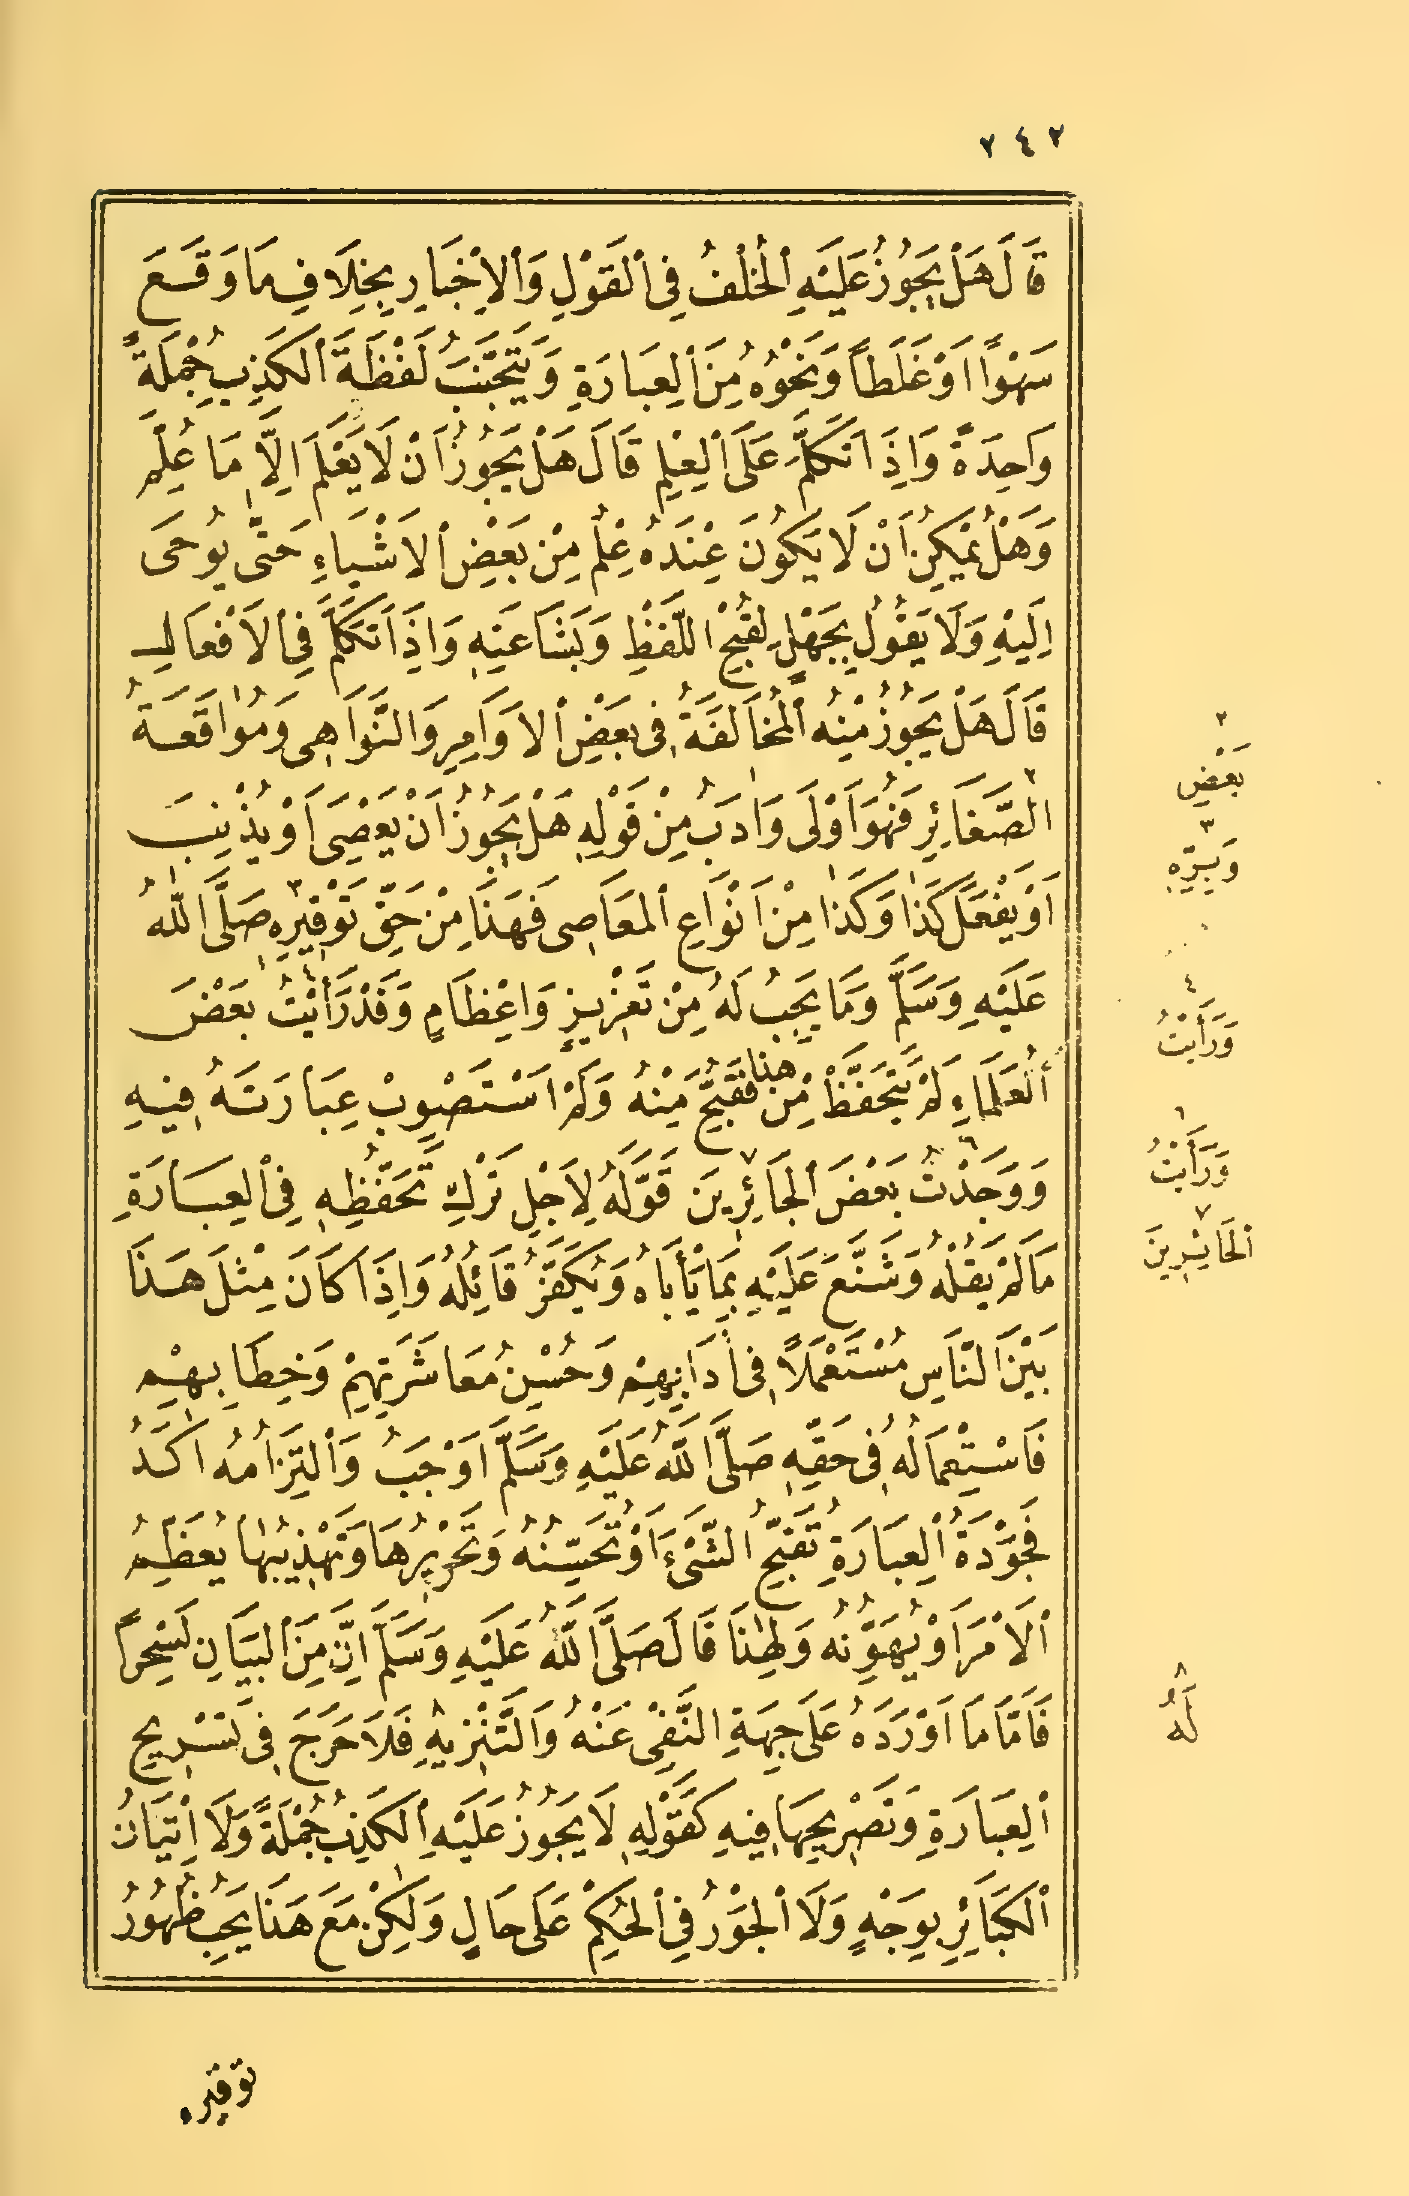 ٢٤٢
قَالَ هَلْ يَجُوزُ عَلَيْهِ ٱلْخُلْفُ فِى ٱلْقَوْلِ وَٱلْاِخْبَارِ بِخِلَافِ مَا وَقَعَ
سَهْوًا اَوْ غَلَطاً وَنَحْوُهُ مِنَ ٱلْعِبَارَةِ وَيَتَجَنَّبُ لَفْظَةَ ٱلْكَذِبِ جُمْلَةً
وَاحِدَةً وَاِذَا تَكَلَّمَ عَلَى ٱلْعِلْمِ قَالَ هَلْ يَجُوزُ اَنْ لَا يَعْلَمَ اِلَّا مَا عُلِّمَ
وَهَلْ يُمْكِنُ اَنْ لَا يَكُونَ عِنْدَهُ عِلْمٌ مِنْ بَعْضِ ٱلْاَشْيَاءِ حَتَّى يُوحَى
اِلَيْهِ وَلَا يَقُولُ بِجَهْلٍ لِقُبْحِ اللَّفْظِ وَبَشَاعَتِهِ وَاِذَا تَكَلَّمَ فِى ٱلْاَفْعَالِ
قَالَ هَلْ يَجُوزُ مِنْهُ ٱلْمُخَالَفَةُ فِى بَعْضِ ٱلْاَوَامِرِ وَالنَّوَاهِى وَمُوَاقَعَةُ
الصَّغَائِرِ فَهُوَ اَوْلَى وَاٰدَبُ مِنْ قَوْلِهِ هَلْ يَجُوزُ اَنْ يَعْصِىَ اَوْ يُذْنِبَ
اَوْ يَفْعَلَ كَذَا وَكَذَا مِنْ اَنْوَاعِ ٱلْمَعَاصِى فَهَذَا مِنْ حَقِّ تَوْقِيرِهِ صَلَّى اللّٰهُ
عَلَيْهِ وَسَلَّمَ وَمَا يَجِبُ لَهُ مِنْ تَعْزِيزٍ وَاِعْظَامٍ وَقَدْ رَأَيْتُ بَعْضَ
ٱلْعُلَمَاءِ لَمْ يَتَحَفَّظْ مِنْ هذا فَقُبِّحَ مِنْهُ وَلَمْ اَسْتَصْوِبْ عِبَارَتَهُ فِيهِ
وَوَجَدْتُ بَعْضَ ٱلْجَائِرِينَ قَوَّلَهُ لِاَجْلِ تَرْكِ تَحَفُّظِهِ فِى ٱلْعِبَارَةِ
مَا لَمْ يَقُلْهُ وَشَنَّعَ عَلَيْهِ بِمَا يَأْبَاهُ وَيُكَفِّرُ قَائِلَهُ وَاِذَا كَانَ مِثْلُ هَذَا
بَيْنَ النَّاسِ مُسْتَعْمَلاً فِى اٰدَابِهِمْ وَحُسْنِ مُعَاشَرَتِهِمْ وَخِطَابِهِمْ
فَاسْتِعْمَالُهُ فِى حَقِّهِ صَلَّى اللّٰهُ عَلَيْهِ وَسَلَّمَ اَوْجَبُ وَٱلْتِزَامُهُ اٰكَدُ
فَجَوْدَةُ ٱلْعِبَارَةِ تُقَبِّحُ الشَّىْءَ اَوْ تُحَسِّنُهُ وَتَحْرِيرُهَا وَتَهْذِيبُهَا يُعَظِّمُ
ٱلْاَمْرَ اَوْ يُهَوِّنُهُ وَلِهٰذَا قَالَ صَلَّى اللّٰهُ عَلَيْهِ وَسَلَّمَ اِنَّ مِنَ ٱلْبَيَانِ لَسِحْراً
فَاَمَّا مَا اَوْرَدَهُ عَلَى جِهَةِ النَّفْىِ عَنْهُ وَالتَّنْزِيهِ فَلَا حَرَجَ فِى تَسْرِيحِ
ٱلْعِبَارَةِ وَتَصْرِيحِهَا فِيهِ كَقَوْلِهِ لَا يَجُوزُ عَلَيْهِ ٱلْكَذِبُ جُمْلَةً وَلَا اِتْيَانُ
ٱلْكَبَائِرِ بِوَجْهٍ وَلَا ٱلْجَوْرُ فِى ٱلْحُكْمِ عَلَى حَالٍ وَلٰكِنْ مَعَ هَذَا يَجِبُ ظُهُورُ
٢
بَعْضِ
٣
وَبِرِّهِ
٤
وَرَأَيْتُ
٦
وَرَأَيْتُ
٧
ٱلْحَائِرِينَ
٨
لَهُ
توقيره